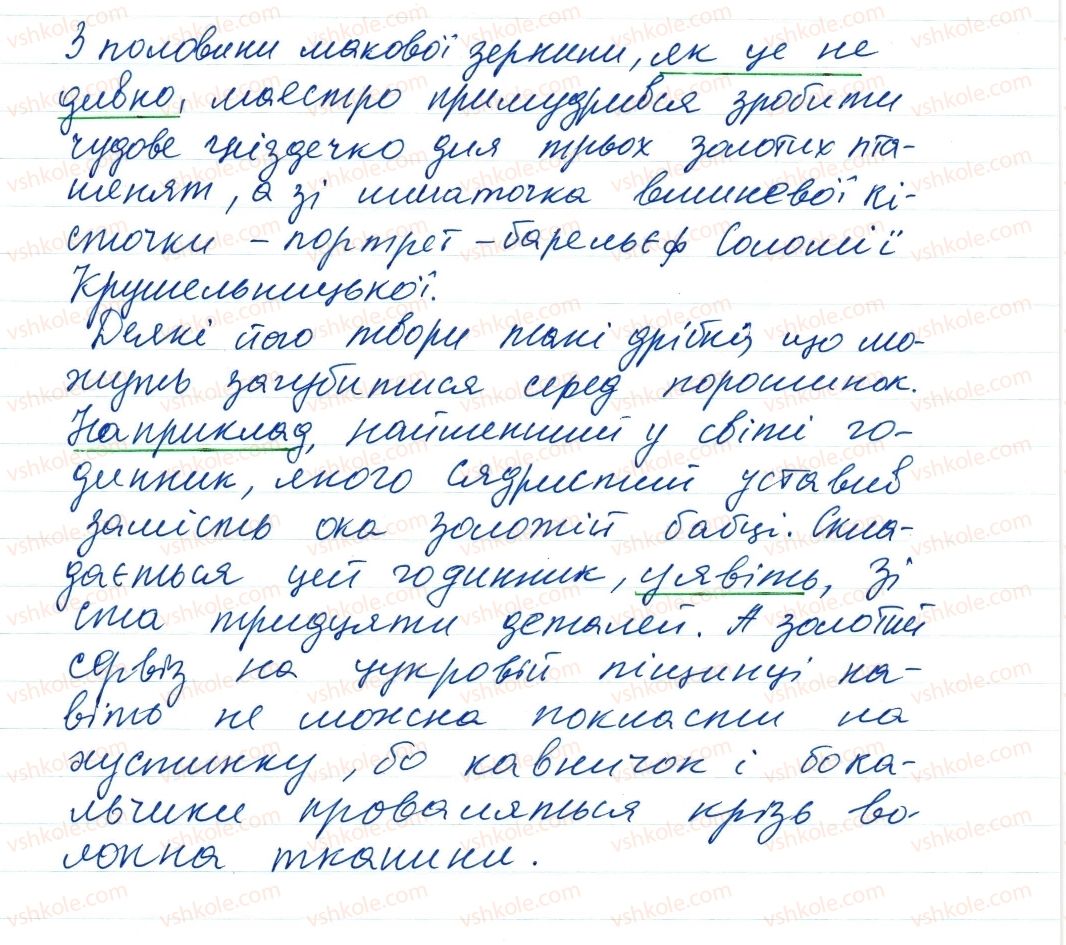 З половини макової зернини, як це не
дивно, маестро примудрився зробити
чудове гніздечко для трьох золотих пта-
шенят, а зі шматочка вишневої кі-
сточки – портрет – барельєф Соломії
Крушельницької.
Деякі його твори такі дрібні, що мо-
жуть загубитися серед порошинок.
Наприклад, найменший у світі го-
динник, якого Сядристий уставив
замість ока золотій бабці. Скла-
дається цей годинник, уявіть, зі
ста тридцяти деталей. А золотий
сервіз на цукровій піщинці на-
віть не можна покласти на
хустинку, бо кавничок і бока-
льчики проваляться крізь во-
локна тканини.